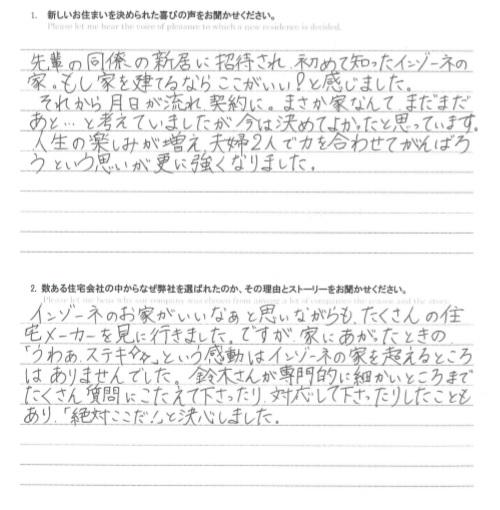 1. 新しいお住まいを決められた喜びの声をお聞かせください。
Please let me hear the voice of pleasure to which a new residence is decided.
先輩の同僚の新居に招待され、初めて知ったインゾーネの
家。もし家を建てるならここがいい!と感じました。
それから月日が流れ、契約に。まさか家なんて、まだまだ
あと…と考えていましたが今は決めてよかったと思っています。
人生の楽しみが増え、夫婦2人で力を合わせてがんばろ
うという思いが更に強くなりました。
2. 数ある住宅会社の中からなぜ弊社を選ばれたのか、その理由とストーリーをお聞かせください。
Please let me hear why our company was chosen from among a lot of companies the reason and the story.
インゾーネのお家がいいなぁと思いながらも、たくさんの住
宅メーカーを見に行きました。ですが、家にあがったときの
「うわぁ、ステキ☆☆」という感動はインゾーネの家を超えるところ
はありませんでした。鈴木さんが専門的に細かいところまで
たくさん質問にこたえて下さったり、対応して下さったりしたことも
あり、「絶対ここだ!」と決心しました。